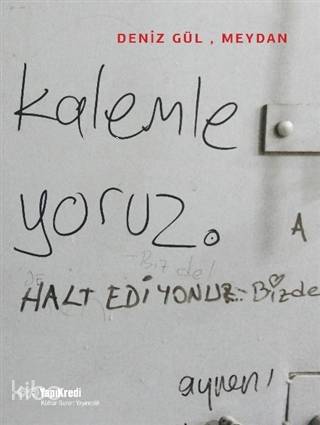 DENİZ GÜL , MEYDAN
kalemle
yoruz.
A
- Biz de!
HALT EDİYONUZ.. Bizde
aynen!
YapıKredi
Kültür Sanat Yayıncılık